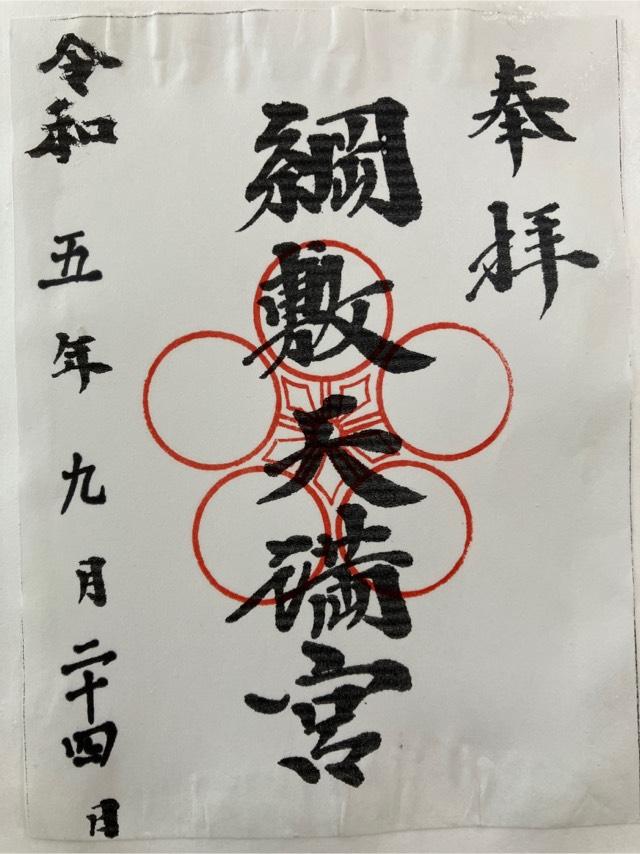 奉拝
綱敷天満宮
令和五年九月二十四日